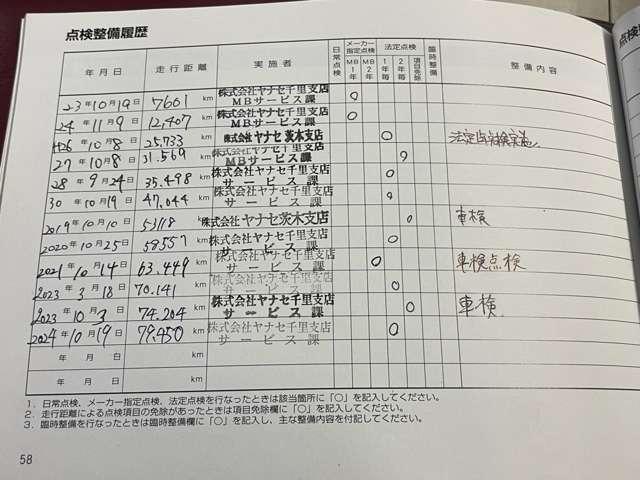 点検整備履歴
年月日 走行距離 実施者 日常点検 メーカー指定点検 MB1年 MB2年 法定点検 1年毎 2年毎 項目免除 臨時整備 整備内容
23年10月19日 7601 km 株式会社ヤナセ千里支店 MBサービス課 ○
24年11月9日 12,407 km 株式会社ヤナセ千里支店 MBサービス課 ○
H26年10月8日 25,733 km 株式会社 ヤナセ 茨木支店 ○ 法定点検実施
27年10月8日 31.569 km 株式会社ヤナセ千里支店 MBサービス課 ○
28年9月24日 35.498 km 株式会社ヤナセ千里支店 サービス課 ○
30年10月19日 47,044 km 株式会社ヤナセ千里支店 サービス課 ○
2019年10月10日 53118 km 株式会社 ヤナセ茨木支店 ○ 車検
2020年10月25日 58557 km 株式会社ヤナセ千里支店 サービス課 ○
2021年10月14日 63.449 km 株式会社ヤナセ千里支店 サービス課 ○ 車検点検
2023年3月18日 70.141 km 株式会社ヤナセ千里支店 サービス課 ○
2023年10月3日 74.204 km 株式会社ヤナセ千里支店 サービス課 ○ 車検
2024年10月19日 79,450 km 株式会社ヤナセ千里支店 サービス課 ○
年月日 km
年月日 km
1.日常点検、メーカー指定点検、法定点検を行なったときは該当箇所に「○」を記入してください。
2.走行距離による点検項目の免除があったときは項目免除欄に「○」を記入してください。
3.臨時整備を行なったときは臨時整備欄に「○」を記入し、主な整備内容を付記してください。
58